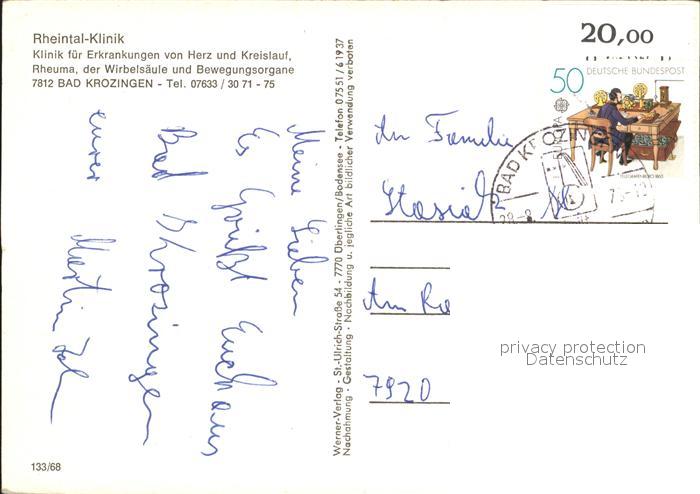 Rheintal-Klinik
Klinik für Erkrankungen von Herz und Kreislauf,
Rheuma, der Wirbelsäule und Bewegungsorgane
7812 BAD KROZINGEN - Tel. 07633 / 30 71 - 75
Meine Lieben
Es Grüßt Euch aus
Bad Krozingen
eurer
Martin
133/68
Werner-Verlag - St.-Ulrich-Straße 54 - 7770 Überlingen/Bodensee - Telefon 07551 / 61937
Nachahmung - Gestaltung - Nachbildung u. jegliche Art bildlicher Verwendung verboten
20,00
50 DEUTSCHE BUNDESPOST
EUROPA
BAD KROZINGEN
An Familie
Am
7920
privacy protection
Datenschutz